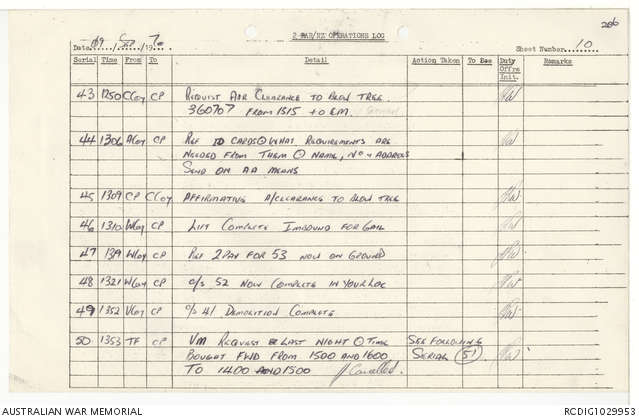 206
2 RAR/NZ OPERATIONS LOG
Date 09/ /1970 Sheet Number 10
Serial Time From To Detail Action Taken To Dee Duty Offrs Init. Remarks
43 1250 CCoy CP REQUEST AIR CLEARANCE TO BLOW TREE
360707 FROM 1315 TO EM.
44 1306 ACoy CP REF ID CARDS WHAT REQUIREMENTS ARE
NEEDED FROM THEM NAME, No + ADDRESS
SEND ON AA MEANS
45 1309 CP CCoy AFFIRMATIVE A/CLEARANCE TO BLOW TREE
46 1310 WCoy CP LIFT COMPLETE INBOUND FOR GAIL
47 1319 WCoy CP REF 2PAX FOR 53 NOW ON GROUND
48 1321 WCoy CP C/S 52 NOW COMPLETE IN YOUR LOC
49 1352 VCoy CP C/S 41 DEMOLITION COMPLETE
50 1353 TF CP VM REQUEST LAST NIGHT TIME SEE FOLLOWING
BOUGHT FWD FROM 1500 AND 1600 SERIAL 51
TO 1400 AND 1500 Cancelled.
AUSTRALIAN WAR MEMORIAL RCDIG1029953